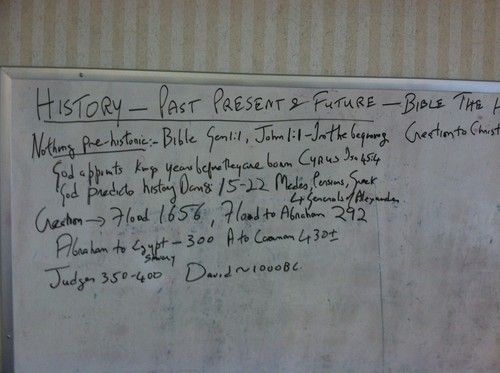 HISTORY — PAST PRESENT & FUTURE — BIBLE THE H
Nothing Pre-historic:- Bible Gen 1:1, John 1:1 - In the beginning Creation to Christ
God appoints king years before they are born CYRUS Isa 45:4
God predicts history Dan 8 15-22 Medes, Persians, Greek
4 Generals of Alexander
Creation → Flood 1656, Flood to Abraham 292
Abraham to Egypt - 300 A to Canaan 430±
slavery
Judges 350-400 David ~ 1000BC